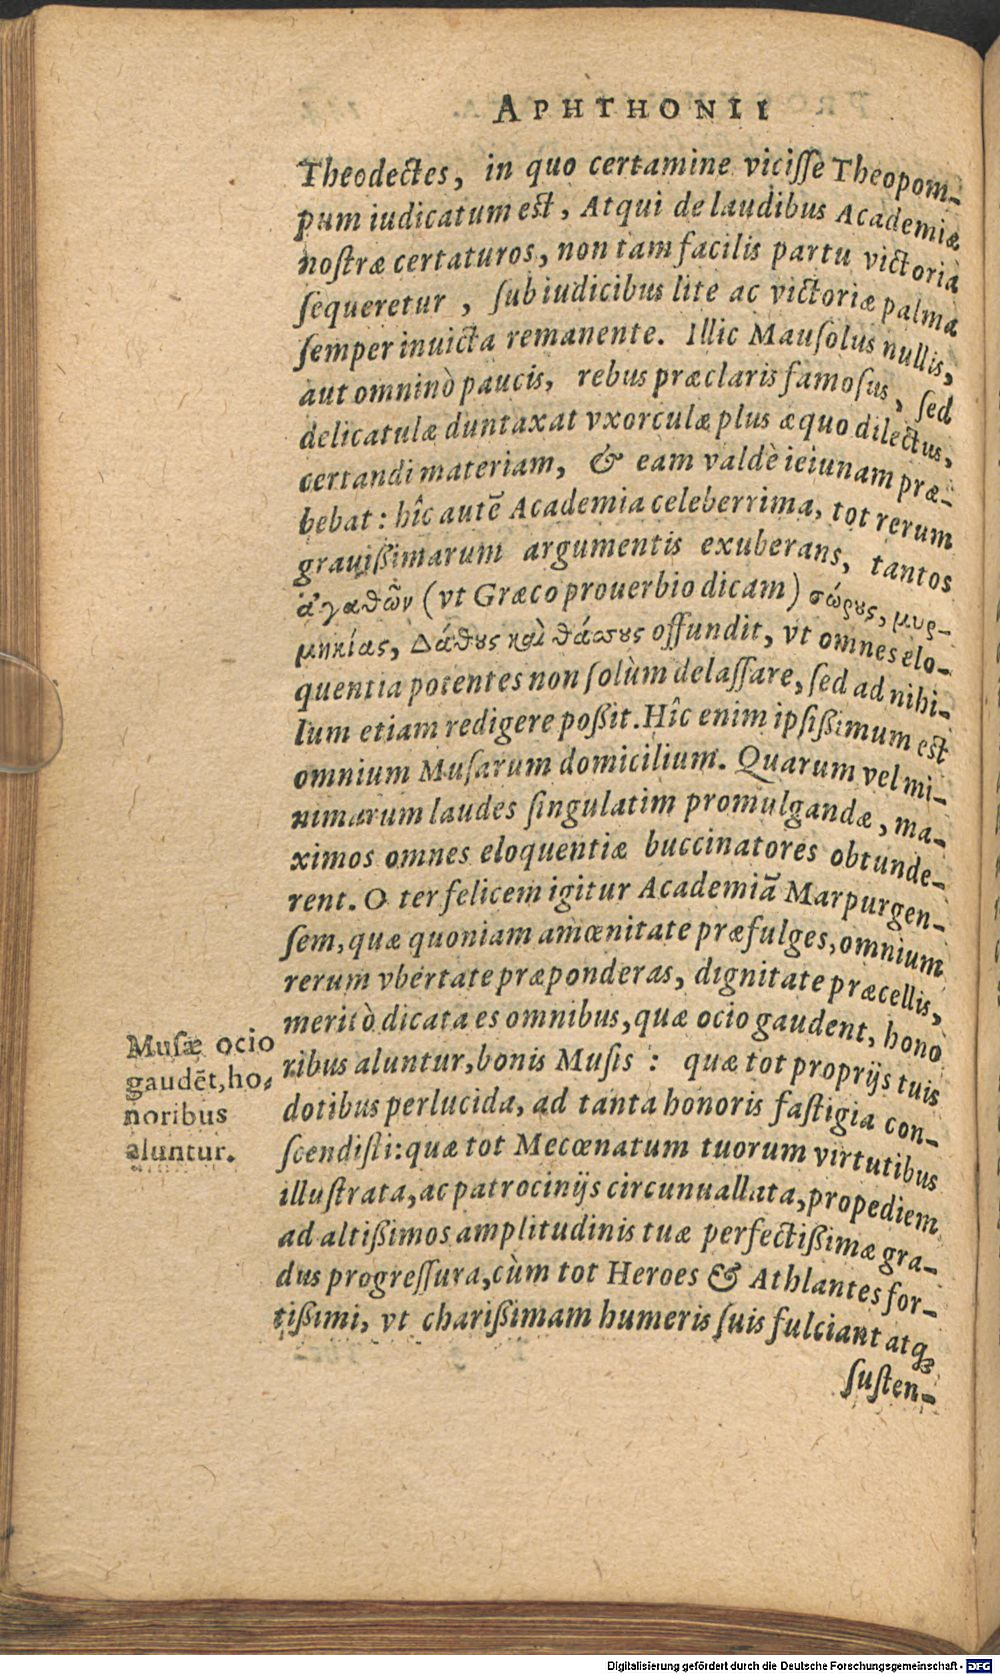 APHTHONII
Theodectes, in quo certamine vicisse Theopom-
pum iudicatum est, Atqui de laudibus Academiæ
nostræ certaturos, non tam facilis partu victoria
sequeretur, sub iudicibus lite ac victoriæ palma
semper inuicta remanente. Illic Mausolus nullis,
aut omninò paucis, rebus præclaris famosus, sed
delicatulæ duntaxat vxorculæ plus æquo dilectus,
certandi materiam, & eam valdè ieiunam præ-
bebat: hîc autē Academia celeberrima, tot rerum
grauißimarum argumentis exuberans, tantos
ἀγαθῶν (vt Græco prouerbio dicam) σώρους, μυρ-
μηκίας, Δάθους καὶ θάσους offundit, vt omnes elo-
quentia potentes non solùm delassare, sed ad nihi-
lum etiam redigere poßit. Hîc enim ipsißimum est
omnium Musarum domicilium. Quarum vel mi-
nimarum laudes singulatim promulgandæ, ma-
ximos omnes eloquentiæ buccinatores obtunde-
rent. O ter felicem igitur Academiā Marpurgen-
sem, quæ quoniam amœnitate præfulges, omnium
rerum vbertate præponderas, dignitate præcellis,
meritò dicata es omnibus, quæ ocio gaudent, hono
ribus aluntur, bonis Musis: quæ tot proprijs tuis
dotibus perlucida, ad tanta honoris fastigia con-
scendisti: quæ tot Mecœnatum tuorum virtutibus
illustrata, ac patrocinijs circunuallata, propediem
ad altißimos amplitudinis tuæ perfectißimæ gra-
dus progressura, cùm tot Heroes & Athlantes for-
tißimi, vt charißimam humeris suis fulciant atq;
susten-
Musæ ocio
gaudēt, ho-
noribus
aluntur.
Digitalisierung gefördert durch die Deutsche Forschungsgemeinschaft - DFG